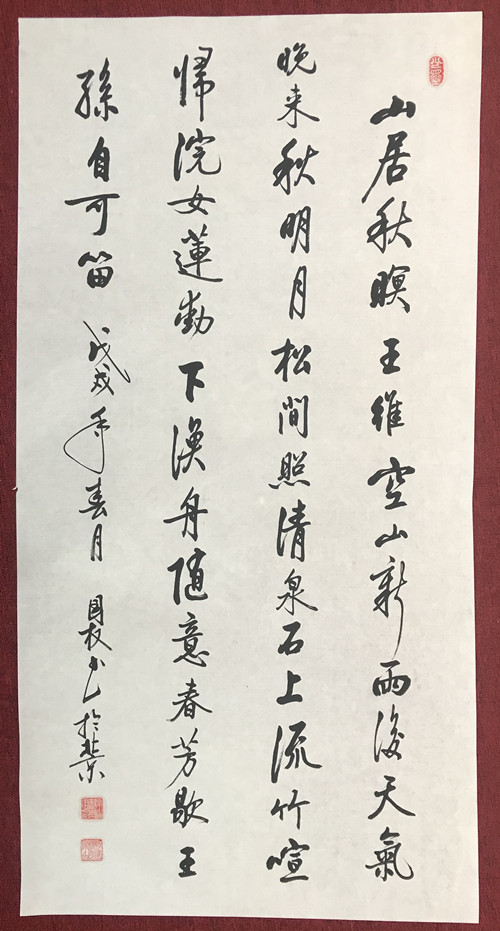 山居秋暝王維空山新雨後天氣
晚来秋明月松間照清泉石上流竹喧
帰浣女蓮動下漁舟随意春芳歇王
孫自可留戊戌年春月国书於北京